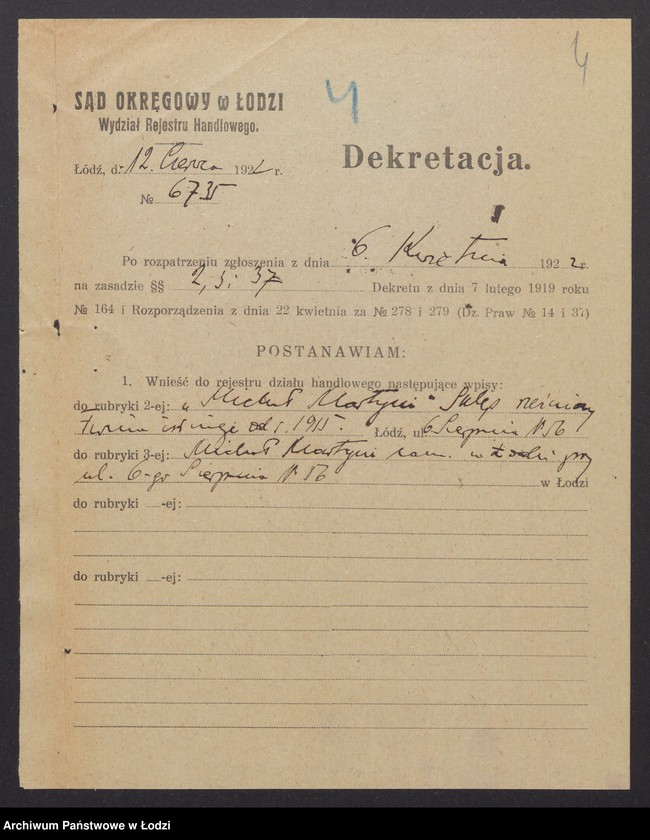 4
4
SĄD OKRĘGOWY w ŁODZI
Wydział Rejestru Handlowego.
Dekretacja.
Łódź, d. 12 Czerwca 1922 r.
№ 6735
Po rozpatrzeniu zgłoszenia z dnia 6. Kwietnia 1922 r.
na zasadzie §§ 2, 5 i 37 Dekretu z dnia 7 lutego 1919 roku
№ 164 i Rozporządzenia z dnia 22 kwietnia za № 278 i 279 (Dz. Praw № 14 i 37)
POSTANAWIAM:
1. Wnieść do rejestru działu handlowego następujące wpisy:
do rubryki 2-ej: „Michał Martyni" Sklep rzeźniczy
firma istnieje od r. 1915. Łódź, ul. 6 Sierpnia № 56
do rubryki 3-ej: Michał Martyni zam. w Łodzi przy
ul. 6-go Sierpnia № 56 w Łodzi
do rubryki -ej:
do rubryki -ej:
Archiwum Państwowe w Łodzi